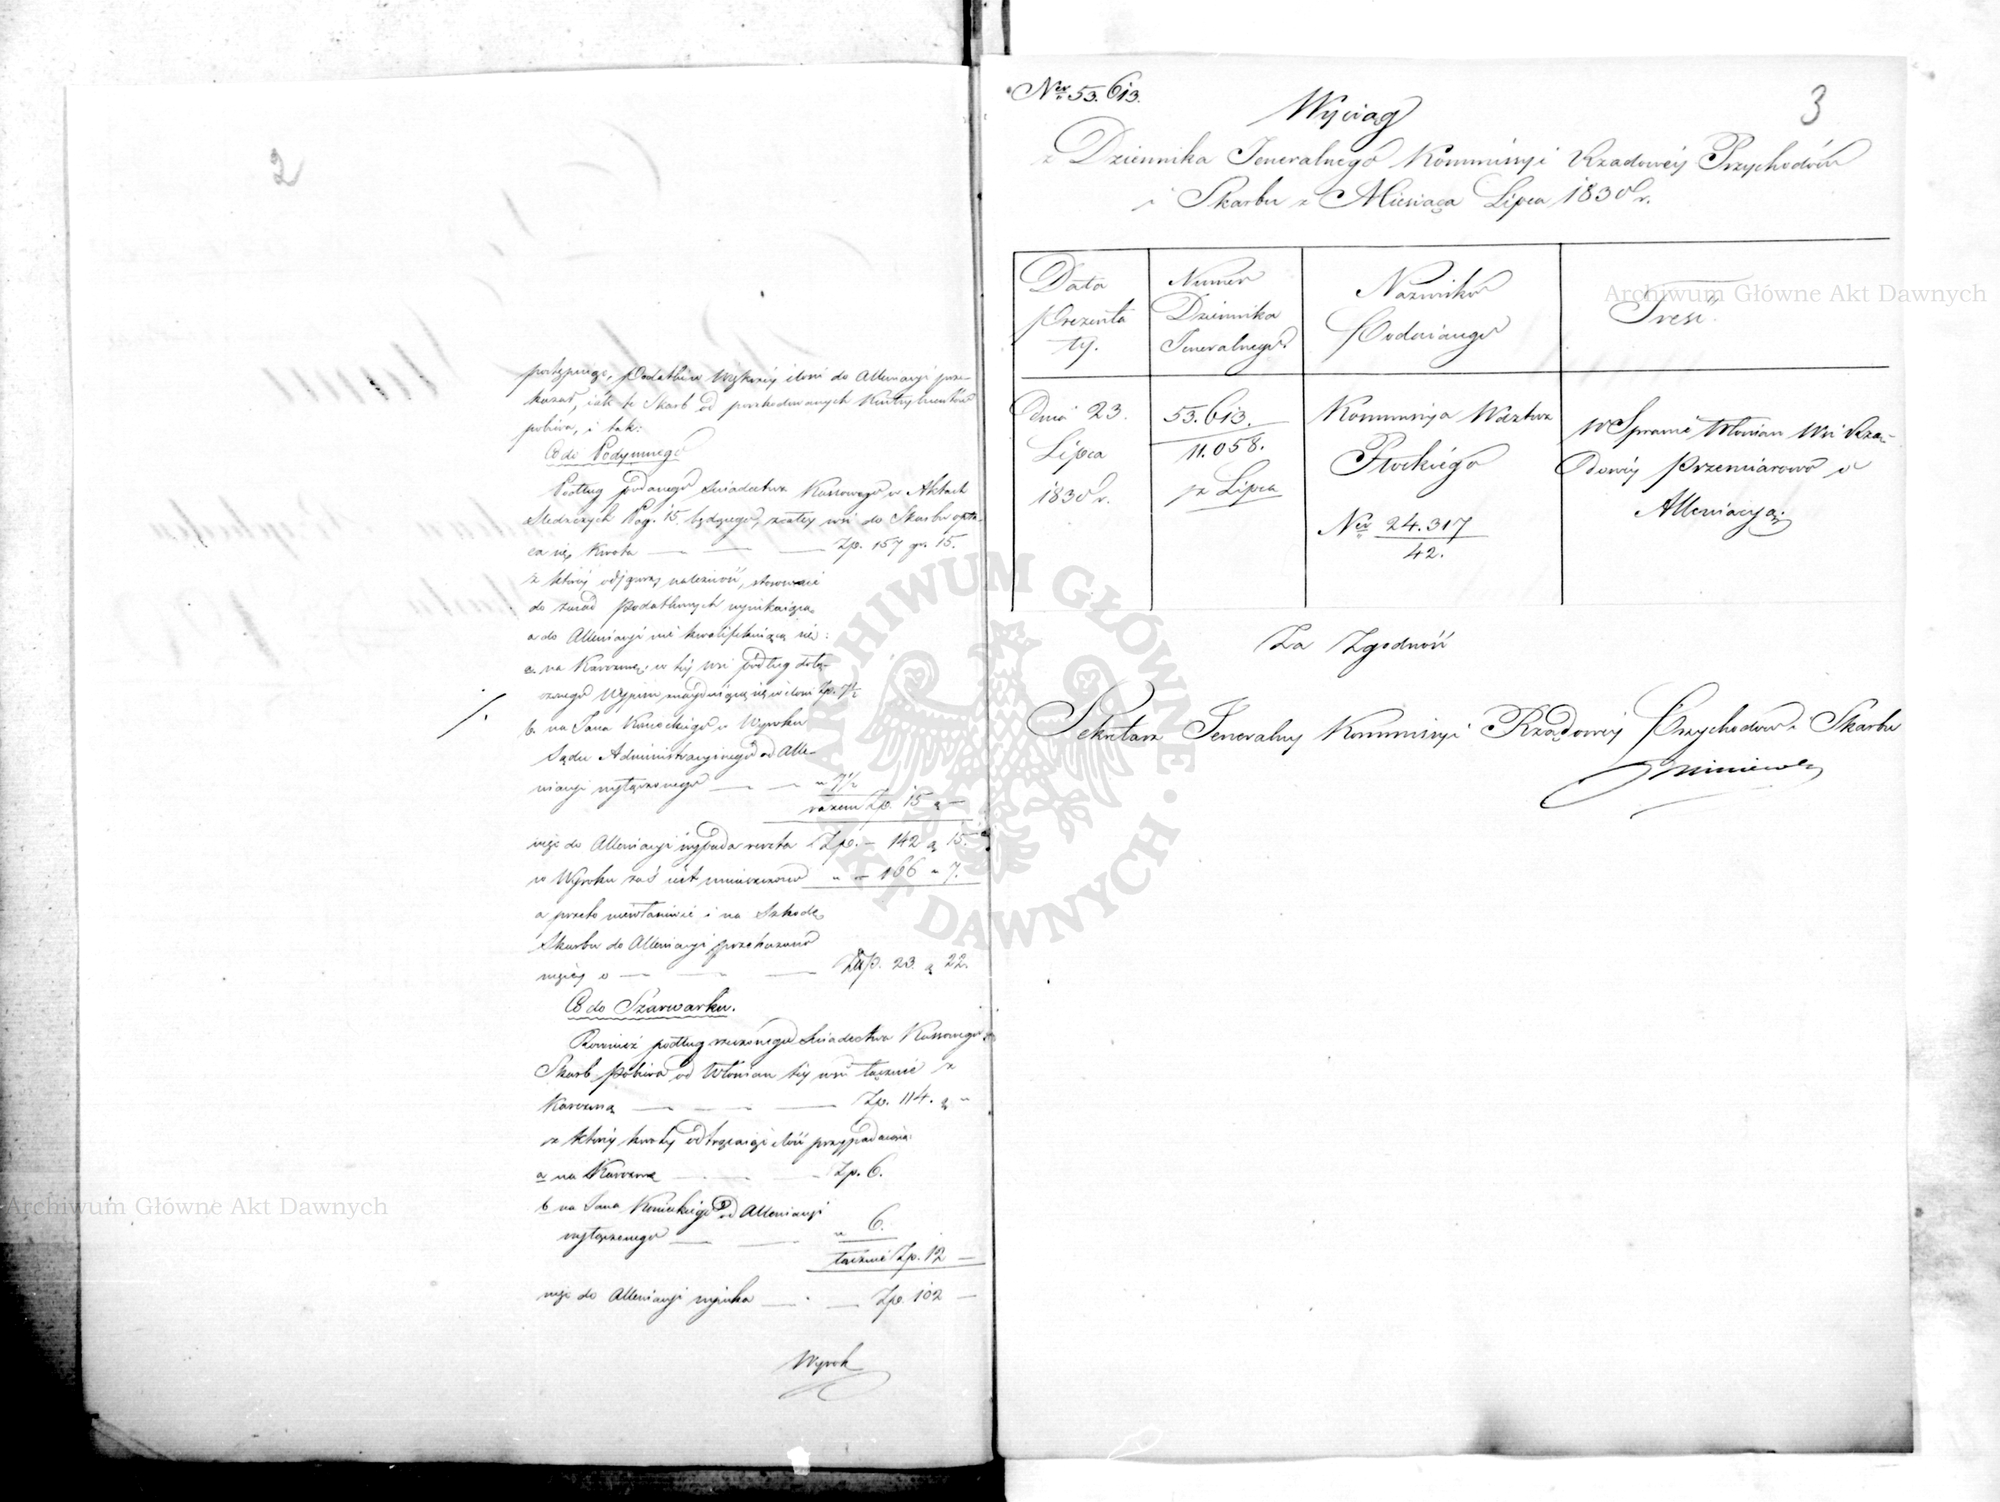 2
postępując, Podatków Wyższej ilości do Allewiacyi prze-
kazał, iak te Skarb od poszkodowanych Kontrybuentów
pobiera, i tak:
Co do Podymnego
Podług podanego Swiadectwa Kassowego w Aktach
Sledczych Pag. 15. będącego, z całey wsi do Skarbu opła-
ca się kwota — — — Zp. 157 gr. 15.
z któréy odjąwszy należność, stosownie
do zasad podatkowych wynikaiącą
a do Allewiacyi nie kwalifikuiącą się:
a. na Karczmę, w téy wsi podług dołą-
czonego Wypisu znayduiącą się w ilości Zp. 7½
b. na Jana Konickiego z Wyroku
Sądu Administracyinego od Alle-
wiacyi wyłączonego — — „ 7½
razem Zp. 15 „ —
więc do Allewiacyi wypada reszta Zp. — 142 „ 15.
w Wyroku zaś iest umieszczono „ — 166 „ 7.
a przeto niewłaściwie i na Szkodę
Skarbu do Allewiacyi przekazano
więcéy o — — — Złp. 23 „ 22.
Co do Szarwarku.
Również podług rzeczonego Swiadectwa Kassowego
Skarb pobiera od Włościan téy wsi łącznie z
Karczmą — — — Zp. 114. „ „
z któréy kwoty odtrąciaiąc ilość przypadaiącą
a na Karczmę — — Zp. 6.
b na Jana Konickiego od Allewiacyi
wyłączonego — — „ 6.
łącznie Zp. 12 —
więc do Allewiacyi wynika — — Zp. 102 —
Wyrok
Nr 53.613.
3
Wyciąg
z Dziennika Jeneralnego Kommissyi Rządowéy Przychodów
i Skarbu z Miesiąca Lipca 1830 r.
Data
prezenta
ty.
Numer
Dziennika
Jeneralnego
Nazwisko
Podaiącego
Treść
Dnia 23.
Lipca
1830 r.
53.613.
11.058.
pr Lipca
Kommissya Wdztwa
Płockiego
Nr 24.317
42.
w Sprawie Włościan Wsi Rzą-
dowéy Przemiarowo o
Allewiacyą.
Za Zgodność
Sekretarz Jeneralny Kommissyi Rządowéy Przychodów i Skarbu
Archiwum Główne Akt Dawnych
Archiwum Główne Akt Dawnych
ARCHIWUM GŁÓWNE AKT DAWNYCH